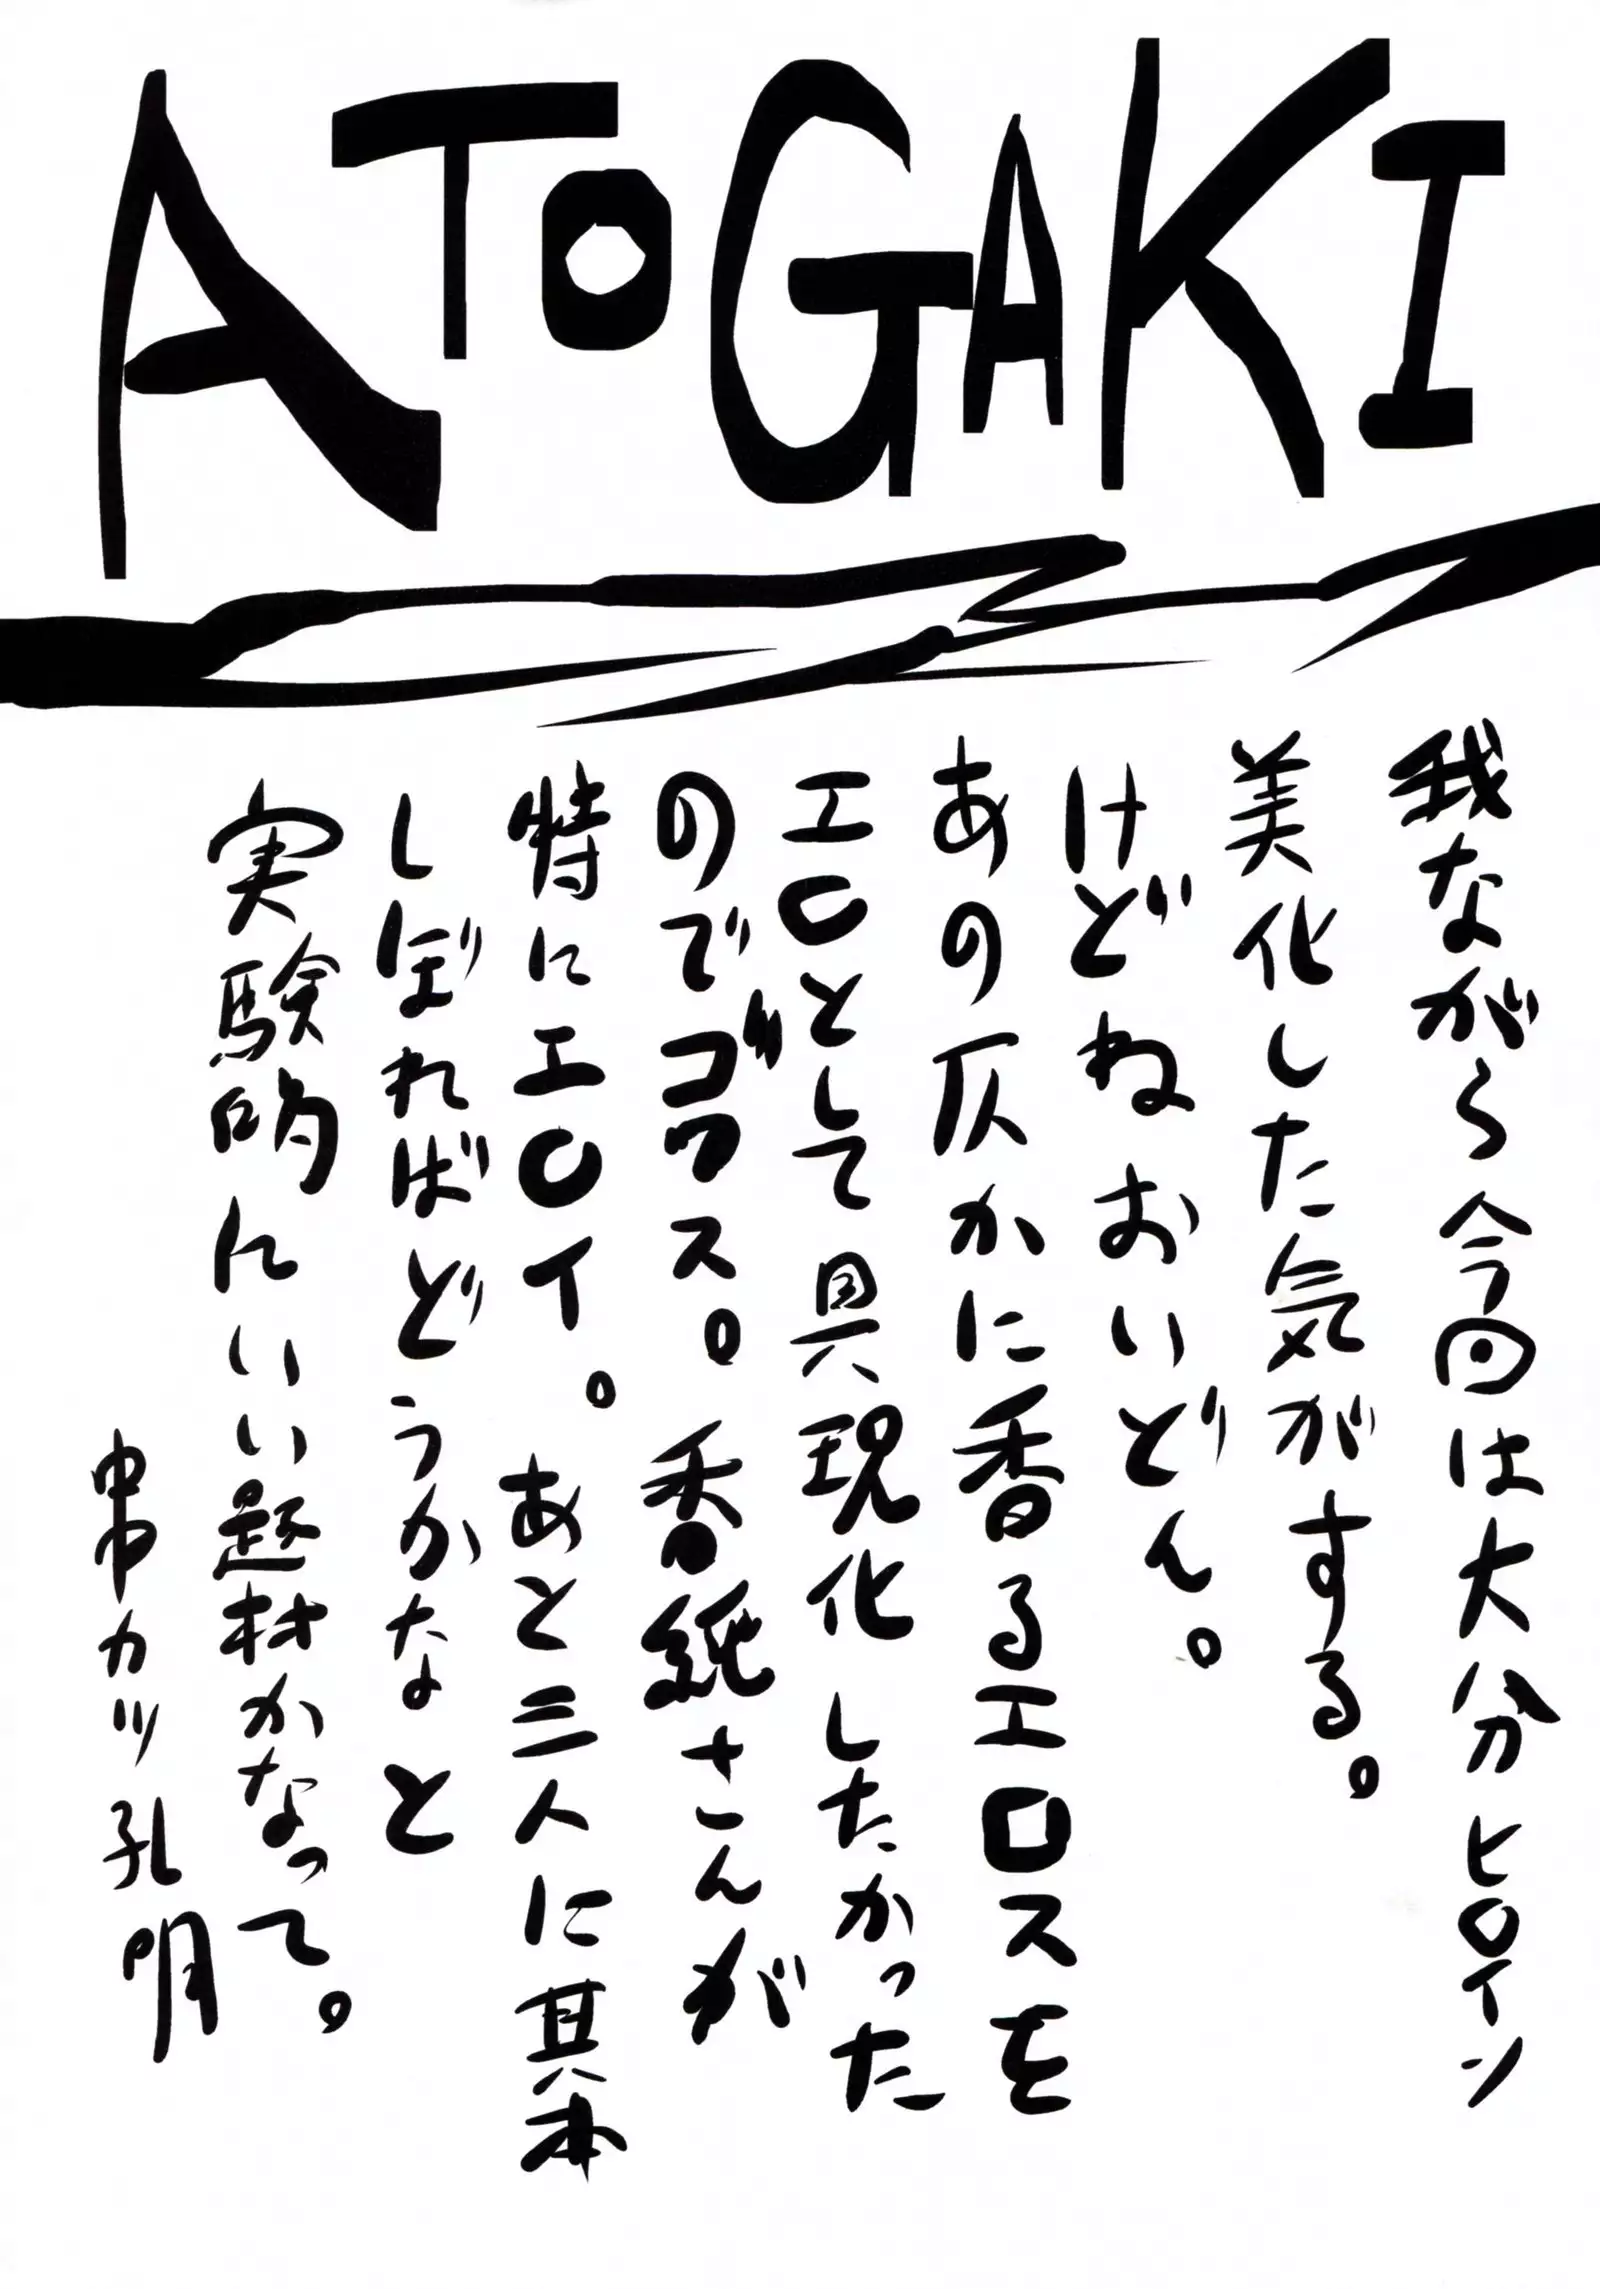 ATOGAKI
我ながら今回は大分ヒロイン
美化した気がする。
けどねおいどん。
あの仄かに香るエロスを
エロとして具現化したかった
のでゴワス。香純さんが
特にエロイ。あと三人に基本
しぼればどうかなと
実験的にいい題材かなって。
串カツ孔明